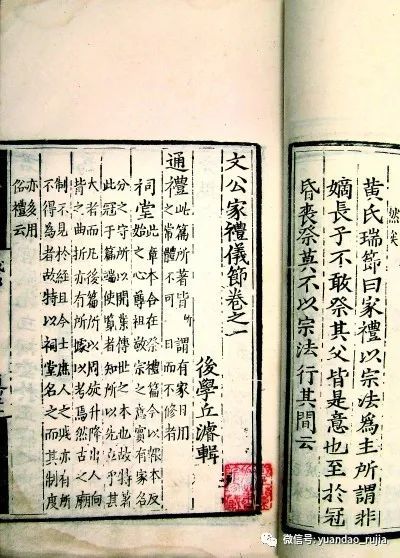 然矣
黄氏瑞節曰家禮以宗法爲主所謂非
嫡長子不敢祭其父皆是意也至於冠
昏喪祭莫不以宗法行其間云
文公家禮儀節卷之一
後學丘濬輯
通禮此篇所著皆謂有家日用
之常體不可日而不修者
祠堂此章本合在祭禮篇今以報本反
始之心尊祖敬宗之意實有家名
分之守所以開業傳世之本也故特著
此冠于篇端使覽者知所以先立乎其
大者而凡後篇所以周旋升降出入向
背之曲折亦有所據以考焉然古之廟
制不見於經且今士庶人之賤亦有所
不得爲者故特以祠堂名之而其制度
亦多用
俗禮云
微信号: yuandao_rujia